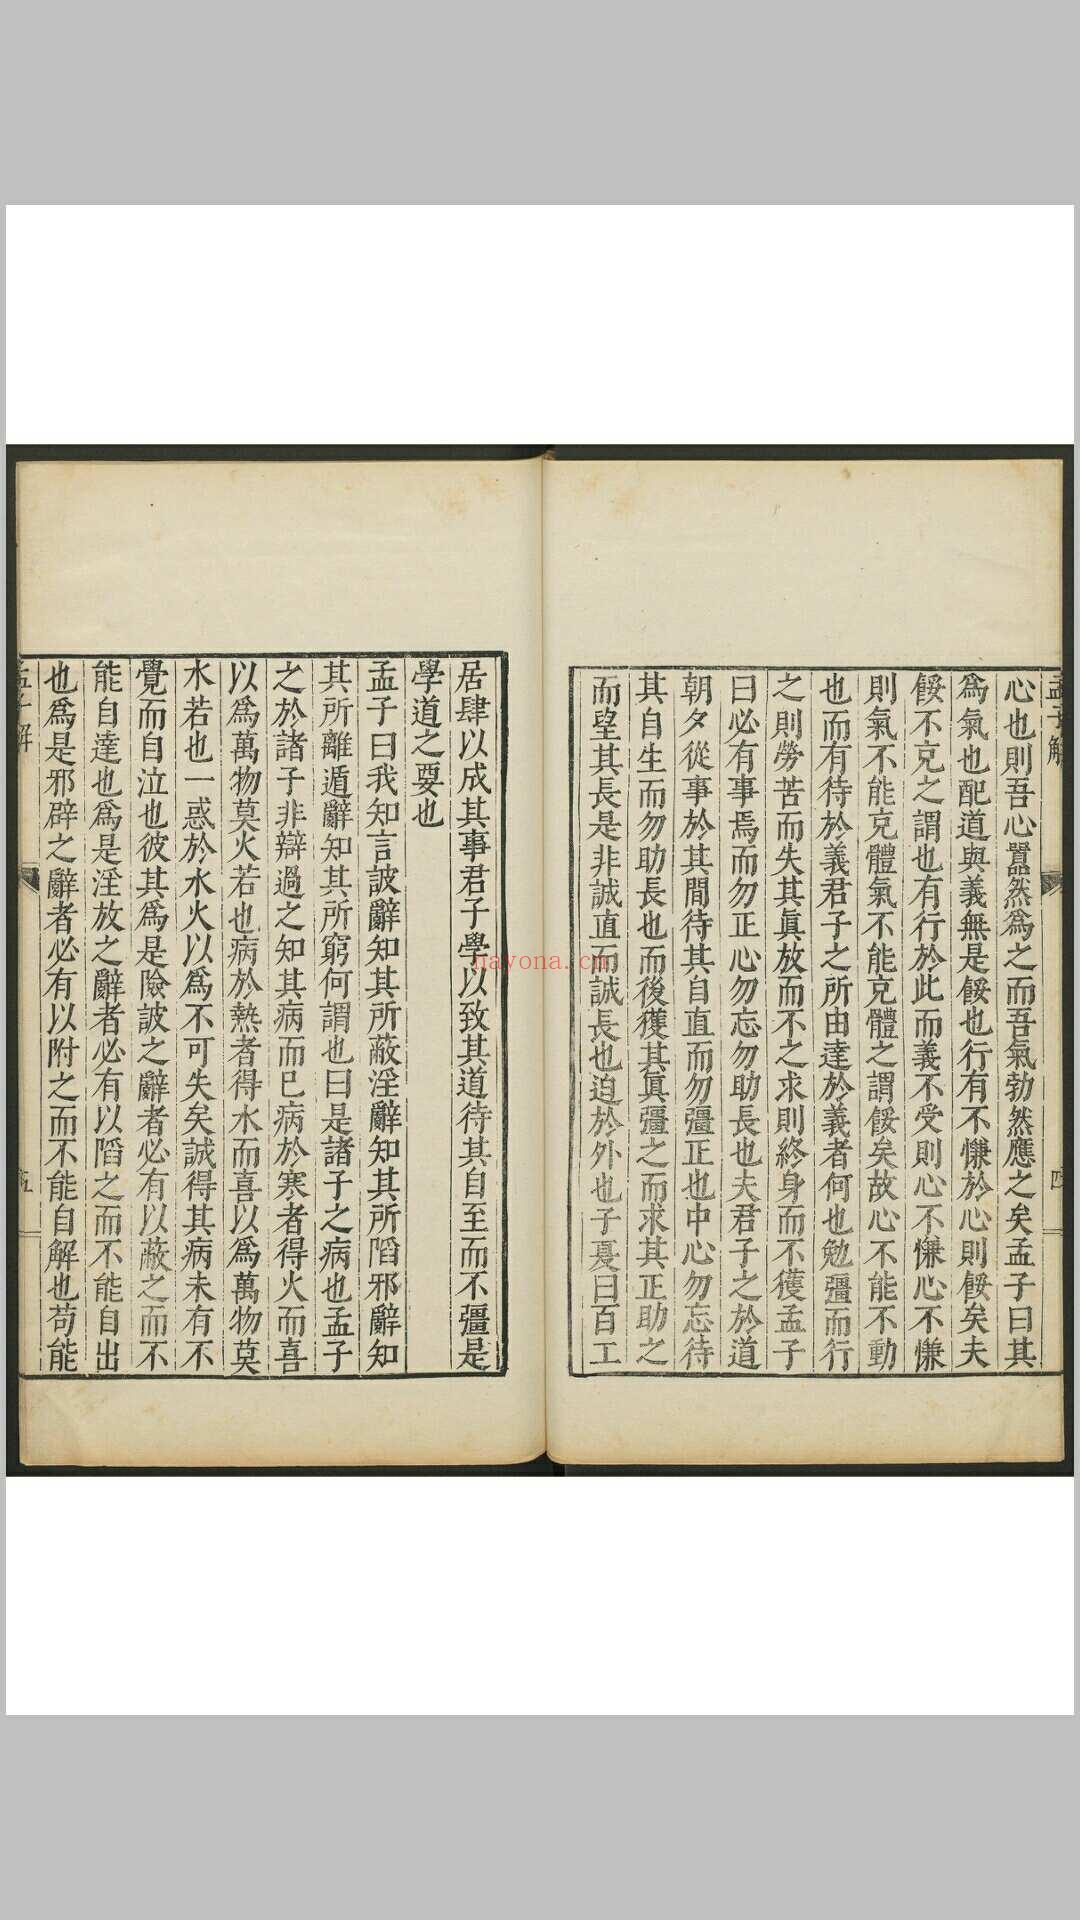 孟子解
四
心也則吾心嚣然爲之而吾氣勃然應之矣孟子曰其
爲氣也配道與義無是餒也行有不慊於心則餒矣夫
餒不克之謂也有行於此而義不受則心不慊心不慊
則氣不能克體氣不能克體之謂餒矣故心不能不動
也而有待於義君子之所由達於義者何也勉彊而行
之則勞苦而失其眞放而不之求則終身而不獲孟子
曰必有事焉而勿正心勿忘勿助長也夫君子之於道
朝夕從事於其間待其自直而勿彊正也中心勿忘待
其自生而勿助長也而後獲其眞彊之而求其正助之
而望其長是非誠直而誠長也迫於外也子夏曰百工
居肆以成其事君子學以致其道待其自至而不彊是
學道之要也
孟子曰我知言詖辭知其所蔽淫辭知其所䧟邪辭知
其所離遁辭知其所窮何謂也曰是諸子之病也孟子
之於諸子非辯過之知其病而已病於寒者得火而喜
以爲萬物莫火若也病於熱者得水而喜以爲萬物莫
水若也一惑於水火以爲不可失矣誠得其病未有不
覺而自泣也彼其爲是險詖之辭者必有以蔽之而不
能自達也爲是淫放之辭者必有以䧟之而不能自出
也爲是邪辟之辭者必有以附之而不能自解也苟能
孟子解
五
nayona.cn